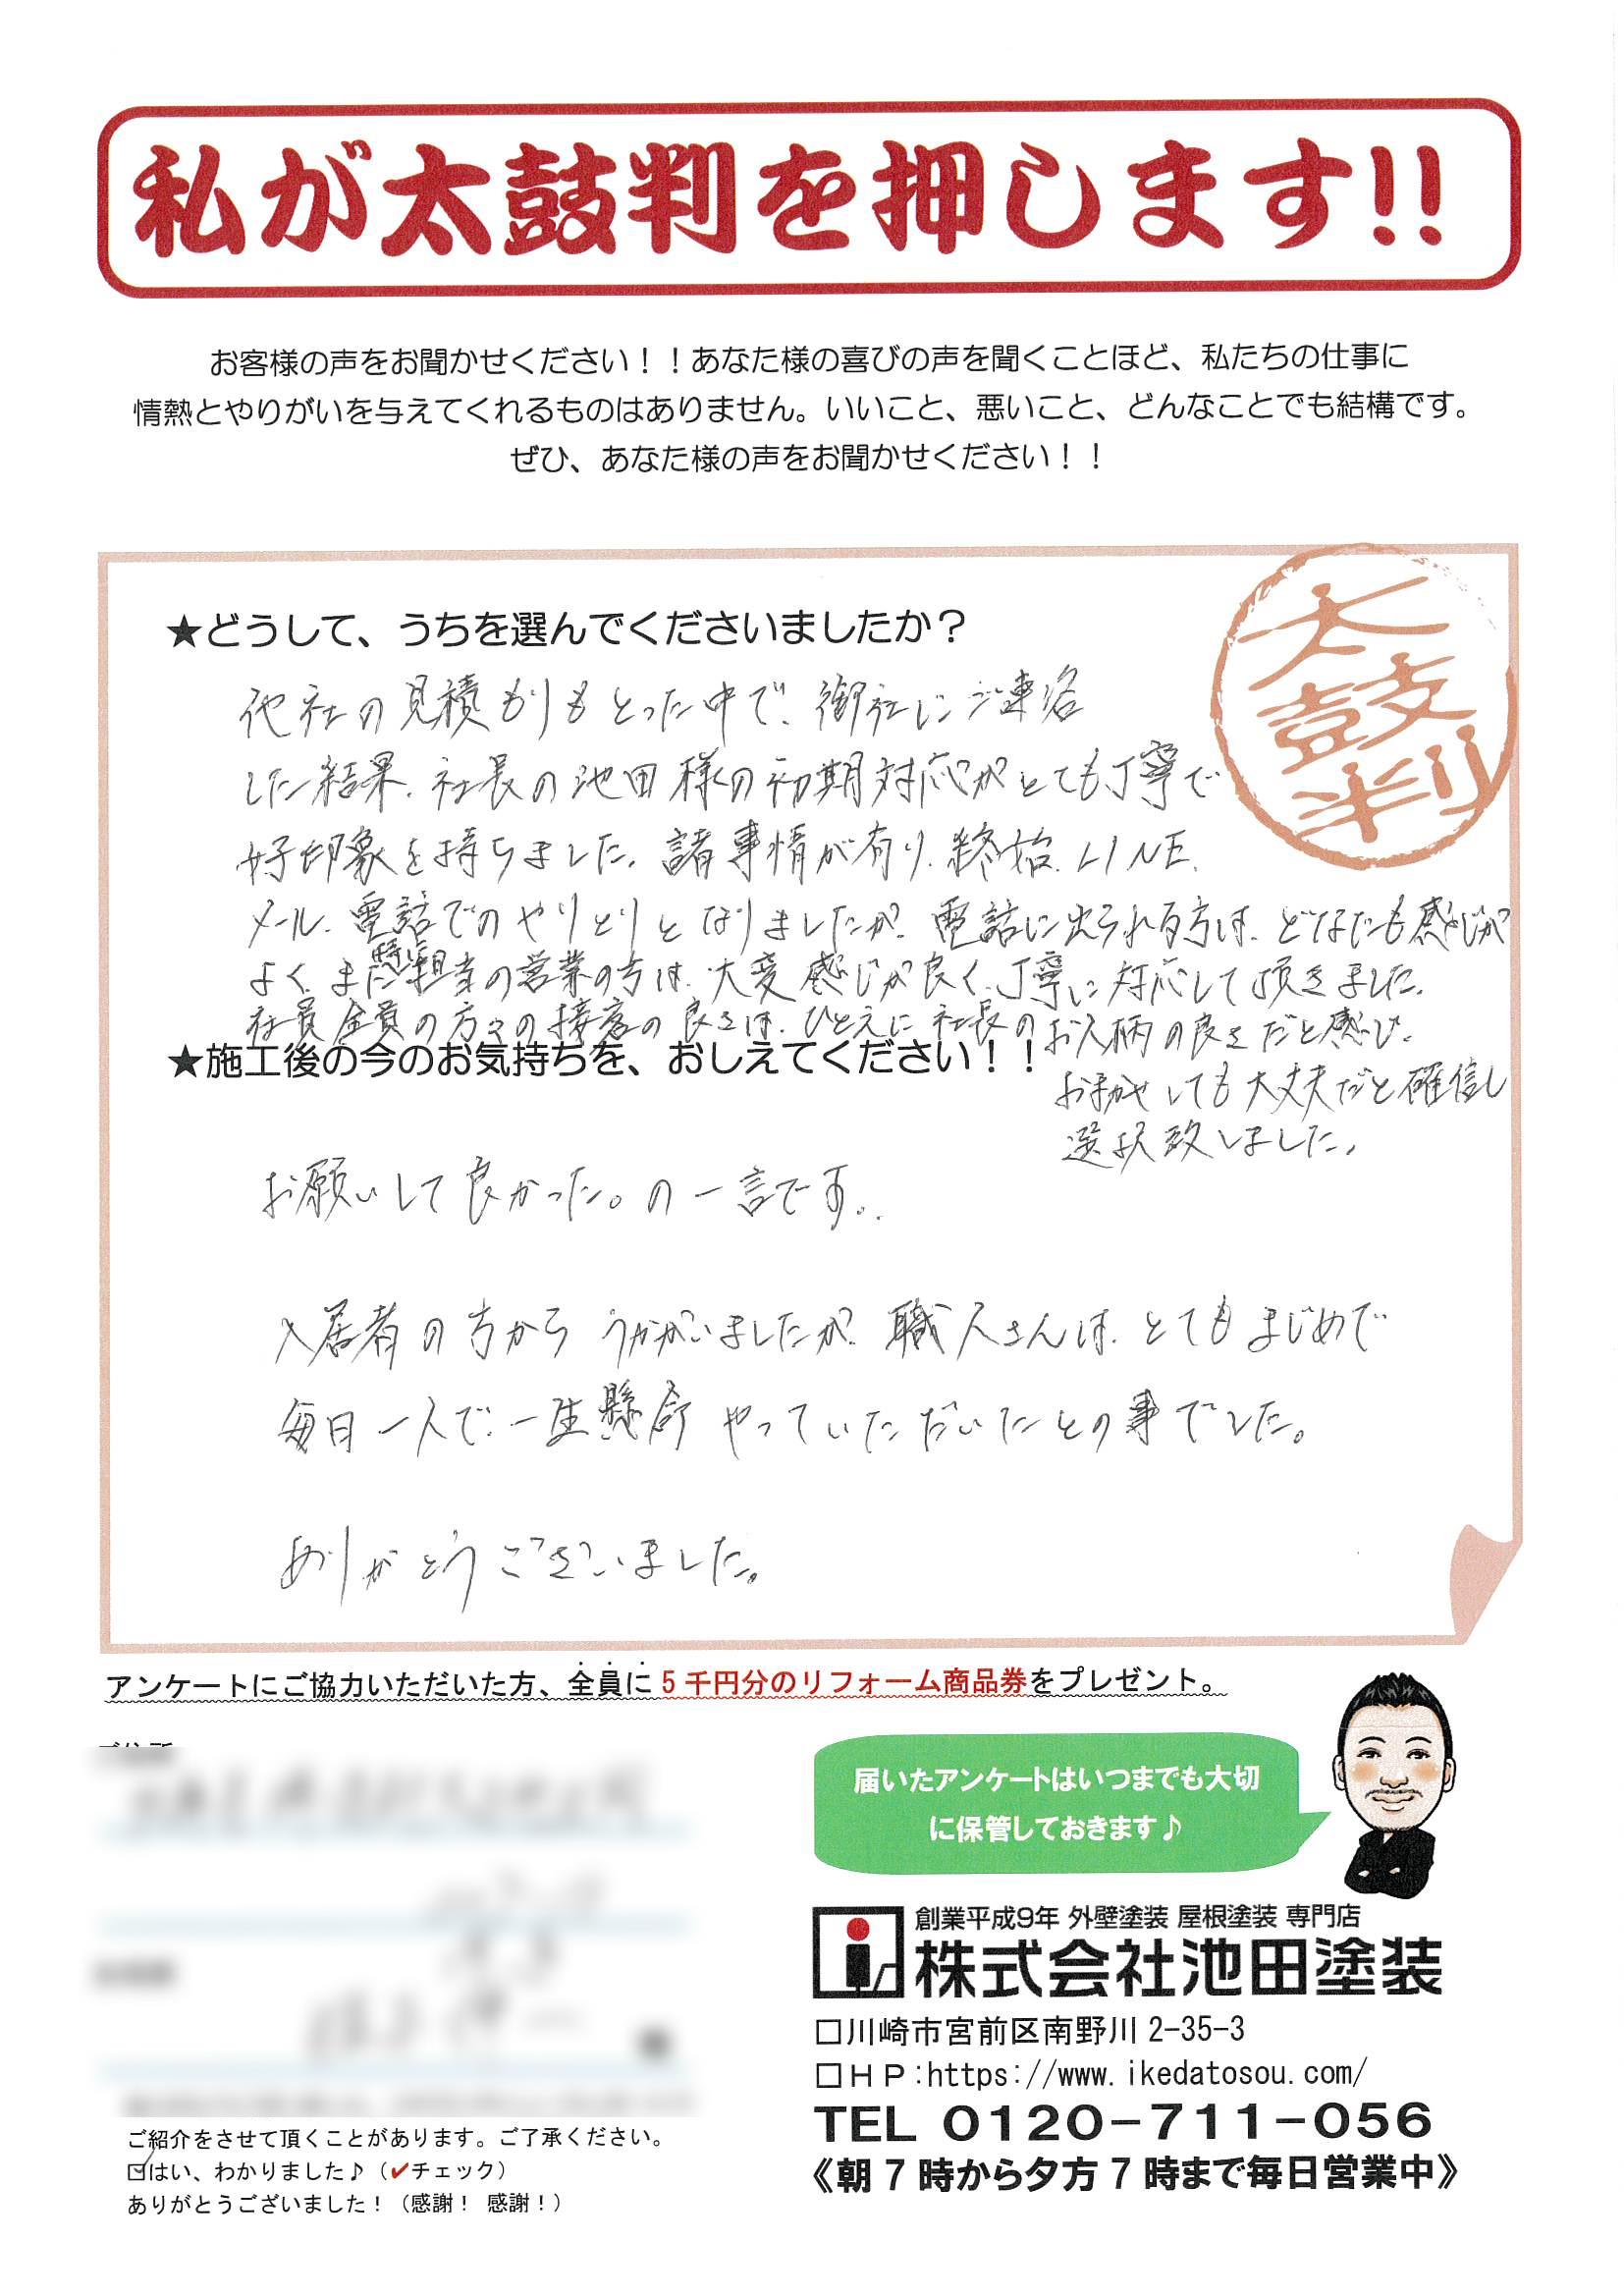 私が太鼓判を押します!!
お客様の声をお聞かせください！！あなた様の喜びの声を聞くことほど、私たちの仕事に
情熱とやりがいを与えてくれるものはありません。いいこと、悪いこと、どんなことでも結構です。
ぜひ、あなた様の声をお聞かせください！！
太
鼓
判
★どうして、うちを選んでくださいましたか？
他社の見積もりもとった中で、御社にご連絡
した結果、社長の池田様の初期対応がとても丁寧で
好印象を持ちました。諸事情が有り、終始、LINE、
メール、電話でのやりとりとなりましたが、電話に出られる方は、どなたも感じが
よく、また特に担当の営業の方は、大変感じが良く、丁寧に対応して頂きました。
社員全員の方々の接客の良さは、ひとえに社長のお人柄の良さだと感じ、
おまかせしても大丈夫だと確信し
選択致しました。
★施工後の今のお気持ちを、おしえてください！！
お願いして良かった。の一言です。.
入居者の方からうかがいましたが、職人さんは、とてもまじめで
毎日一人で、一生懸命やっていただいたとの事でした。
ありがとうございました。
アンケートにご協力いただいた方、全員に5千円分のリフォーム商品券をプレゼント。
届いたアンケートはいつまでも大切
に保管しておきます♪
創業平成9年 外壁塗装 屋根塗装 専門店
株式会社池田塗装
□川崎市宮前区南野川2-35-3
□ＨＰ:https://www.ikedatosou.com/
TEL 0120-711-056
《朝7時から夕方7時まで毎日営業中》
ご紹介をさせて頂くことがあります。ご了承ください。
☑はい、わかりました♪（✔チェック）
ありがとうございました！（感謝！ 感謝！）